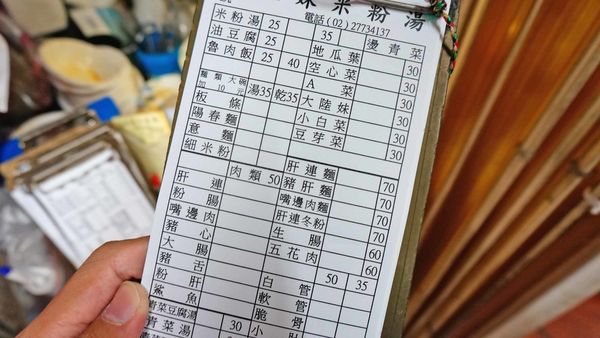 妹米粉湯
電話(02)27734137
米粉湯 25 35 燙青菜
油豆腐 25 地瓜葉 30
魯肉飯 25 40 空心菜 30
麵類大碗加10元 湯35 乾35 A菜 30
大陸妹 30
板條 小白菜 30
陽春麵 豆芽菜 30
意麵
細米粉
肉類50 肝連麵 70
肝連 豬肝麵 70
粉腸 嘴邊肉麵 70
嘴邊肉 肝連冬粉 70
豬心 生腸 60
大腸 五花肉 60
豬舌 50 35
粉肝 白管
鯊魚 軟管
青菜豆腐湯 脆骨
青菜湯 30 小肚